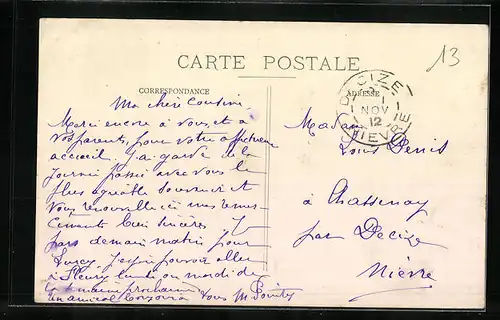 CARTE POSTALE
13
CORRESPONDANCE
ADRESSE
DECIZE
1
NOV
12
NIEVRE
Ma chère Cousine
Merci encore à vous, et à
vos parents, pour votre affectueux
accueil. J'ai gardé de la
journée passée avec vous le
plus agréable souvenir et
vous renouvelle ici mes remer-
ciements bien sincères. Je
pars demain matin pour
Lurcy. J'espère pouvoir aller
à Fleury lundi ou mardi de
la semaine prochaine
Un amical bonsoir à vous
Madame
Louis Denis
à Chassenay
par Decize
Nièvre